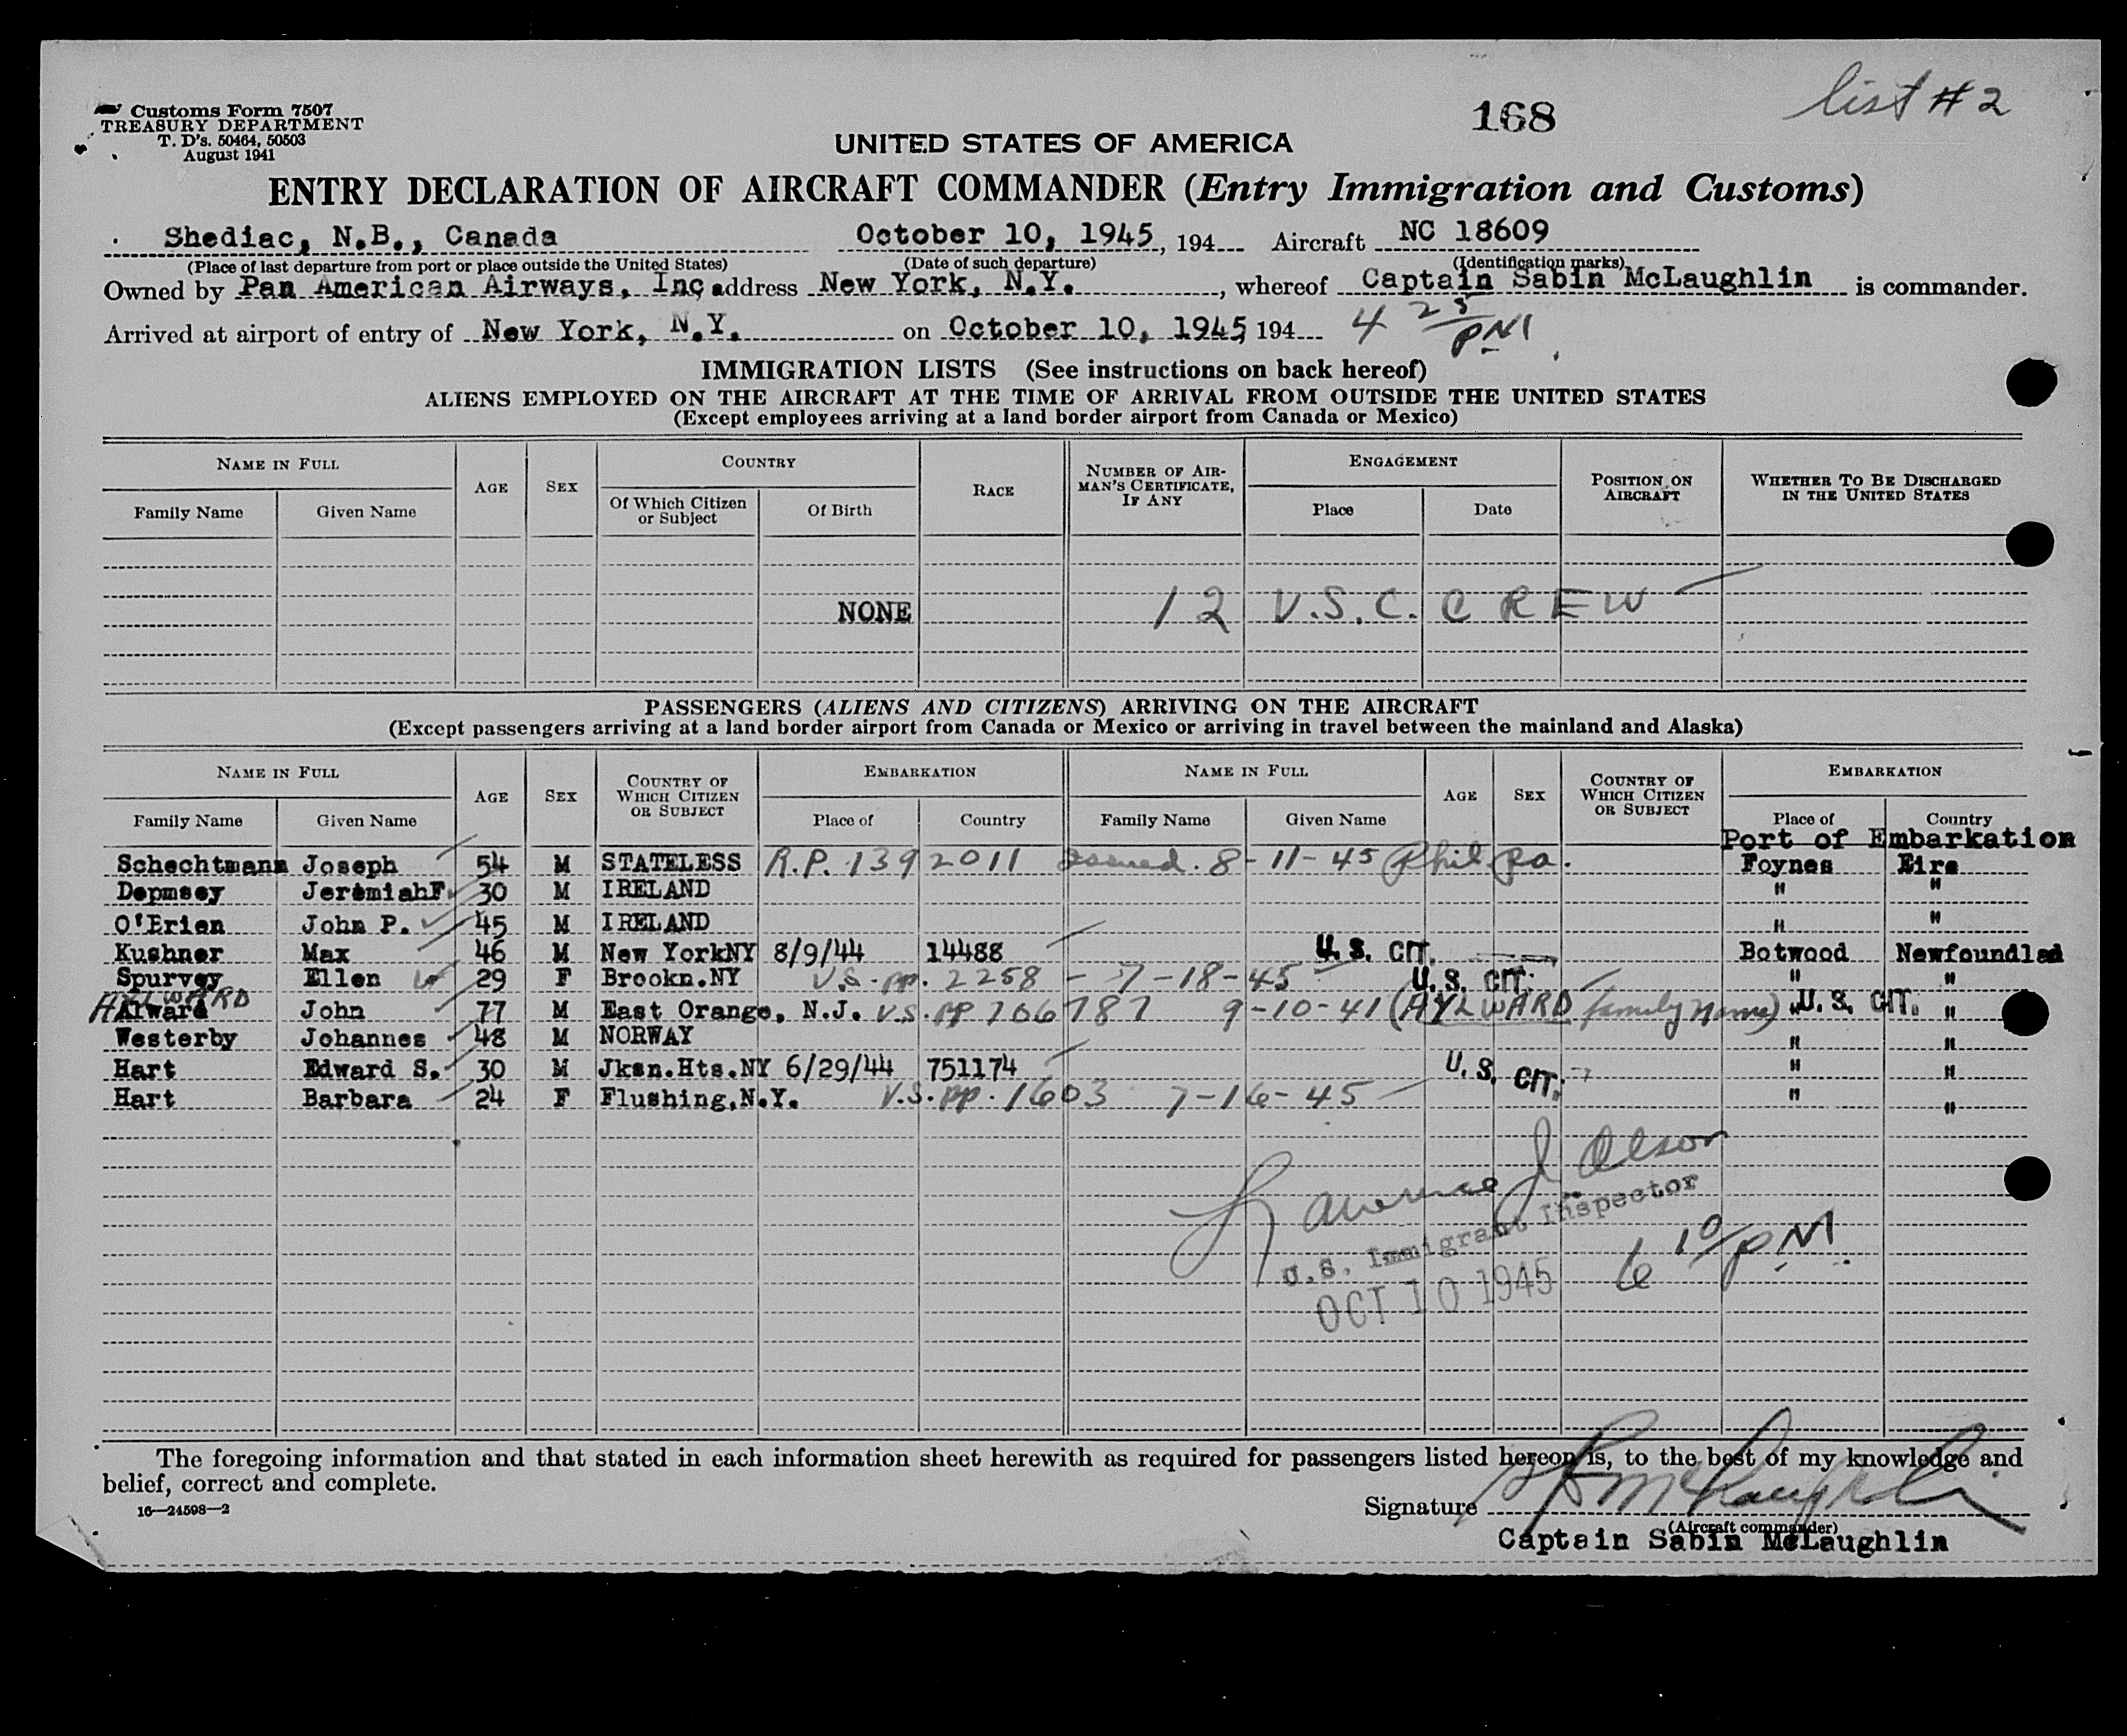 Customs Form 7507
TREASURY DEPARTMENT
T. D's. 50464, 50503
August 1941
168
list # 2
UNITED STATES OF AMERICA
ENTRY DECLARATION OF AIRCRAFT COMMANDER (Entry Immigration and Customs)
Shediac, N.B., Canada October 10, 1945, 194 Aircraft NC 18609
(Place of last departure from port or place outside the United States) (Date of such departure) (Identification marks)
Owned by Pan American Airways, Inc address New York, N.Y. , whereof Captain Sabin McLaughlin is commander.
Arrived at airport of entry of New York, N.Y. on October 10, 1945 194 4 25 PM
IMMIGRATION LISTS (See instructions on back hereof)
ALIENS EMPLOYED ON THE AIRCRAFT AT THE TIME OF ARRIVAL FROM OUTSIDE THE UNITED STATES
(Except employees arriving at a land border airport from Canada or Mexico)
NAME IN FULL AGE SEX COUNTRY RACE NUMBER OF AIRMAN'S CERTIFICATE, IF ANY ENGAGEMENT POSITION ON AIRCRAFT WHETHER TO BE DISCHARGED IN THE UNITED STATES
Family Name Given Name Of Which Citizen or Subject Of Birth Place Date
NONE 12 U.S.C. CREW
PASSENGERS (ALIENS AND CITIZENS) ARRIVING ON THE AIRCRAFT
(Except passengers arriving at a land border airport from Canada or Mexico or arriving in travel between the mainland and Alaska)
NAME IN FULL AGE SEX COUNTRY OF WHICH CITIZEN OR SUBJECT EMBARKATION NAME IN FULL AGE SEX COUNTRY OF WHICH CITIZEN OR SUBJECT EMBARKATION
Family Name Given Name Place of Country Family Name Given Name Place of Country
Port of Embarkation
Schechtmann Joseph 54 M STATELESS R.P. 1392011 issued 8-11-45 Phil Pa. Foynes Eire
Depmsey Jeremiah F. 30 M IRELAND " "
O'Brien John P. 45 M IRELAND " "
Kushner Max 46 M New YorkNY 8/9/44 14488 U.S. CIT. Botwood Newfoundlad
Spurvey Ellen 29 F Brookn.NY U.S. pp. 2258 - 7-18-45 U.S. CIT. " "
AYLWARD
Alward John 77 M East Orange, N.J. U.S. pp 706787 9-10-41 (AYLWARD family name) " U.S. CIT. "
Westerby Johannes 48 M NORWAY " "
Hart Edward S. 30 M Jksn.Hts.NY 6/29/44 751174 U.S. CIT. " "
Hart Barbara 24 F Flushing,N.Y. U.S. pp. 1603 7-16-45 " "
Lawrence J Olson
U.S. Immigrant Inspector
OCT 10 1945
6 10/PM.
The foregoing information and that stated in each information sheet herewith as required for passengers listed hereon is, to the best of my knowledge and
belief, correct and complete.
16—24598—2
Signature S McLaughlin
(Aircraft commander)
Captain Sabin McLaughlin